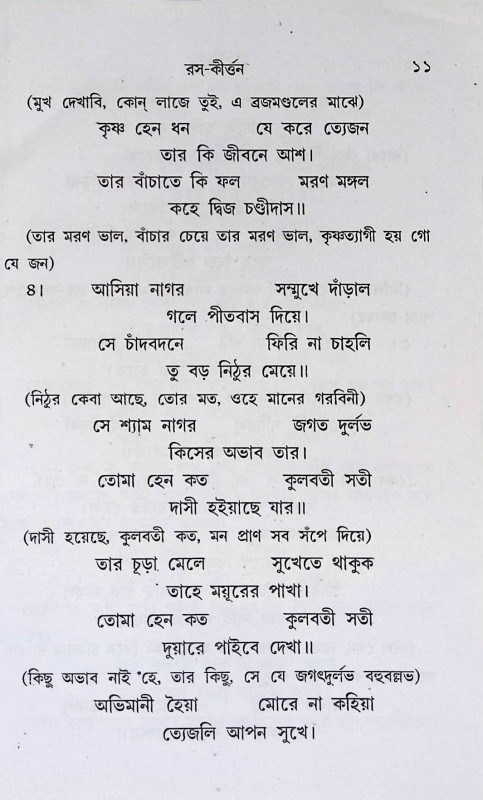 রস-কীর্ত্তন ১১
(মুখ দেখাবি, কোন্ লাজে তুই, এ ব্রজমণ্ডলের মাঝে)
কৃষ্ণ হেন ধন যে করে ত্যেজন
তার কি জীবনে আশ।
তার বাঁচাতে কি ফল মরণ মঙ্গল
কহে দ্বিজ চণ্ডীদাস॥
(তার মরণ ভাল, বাঁচার চেয়ে তার মরণ ভাল, কৃষ্ণত্যাগী হয় গো
যে জন)
৪। আসিয়া নাগর সম্মুখে দাঁড়াল
গলে পীতবাস দিয়ে।
সে চাঁদবদনে ফিরি না চাহলি
তু বড় নিঠুর মেয়ে॥
(নিঠুর কেবা আছে, তোর মত, ওহে মানের গরবিনী)
সে শ্যাম নাগর জগত দুর্লভ
কিসের অভাব তার।
তোমা হেন কত কুলবতী সতী
দাসী হইয়াছে যার॥
(দাসী হয়েছে, কুলবতী কত, মন প্রাণ সব সঁপে দিয়ে)
তার চূড়া মেলে সুখেতে থাকুক
তাহে ময়ূরের পাখা।
তোমা হেন কত কুলবতী সতী
দুয়ারে পাইবে দেখা॥
(কিছু অভাব নাই হে, তার কিছু, সে যে জগৎদুর্লভ বহুবল্লভ)
অভিমানী হৈয়া মোরে না কহিয়া
ত্যেজলি আপন সুখে।